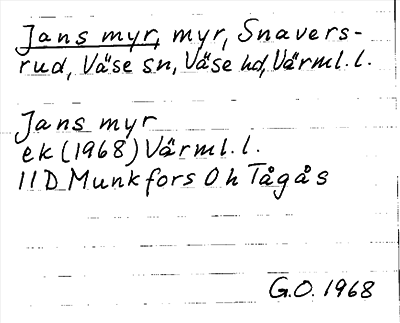 Jans myr, myr, Snavers-
rud, Väse sn, Väse hd, Värml. l.
Jans myr
ek (1968) Värml. l.
11D Munkfors 0h Tågås
G.O. 1968